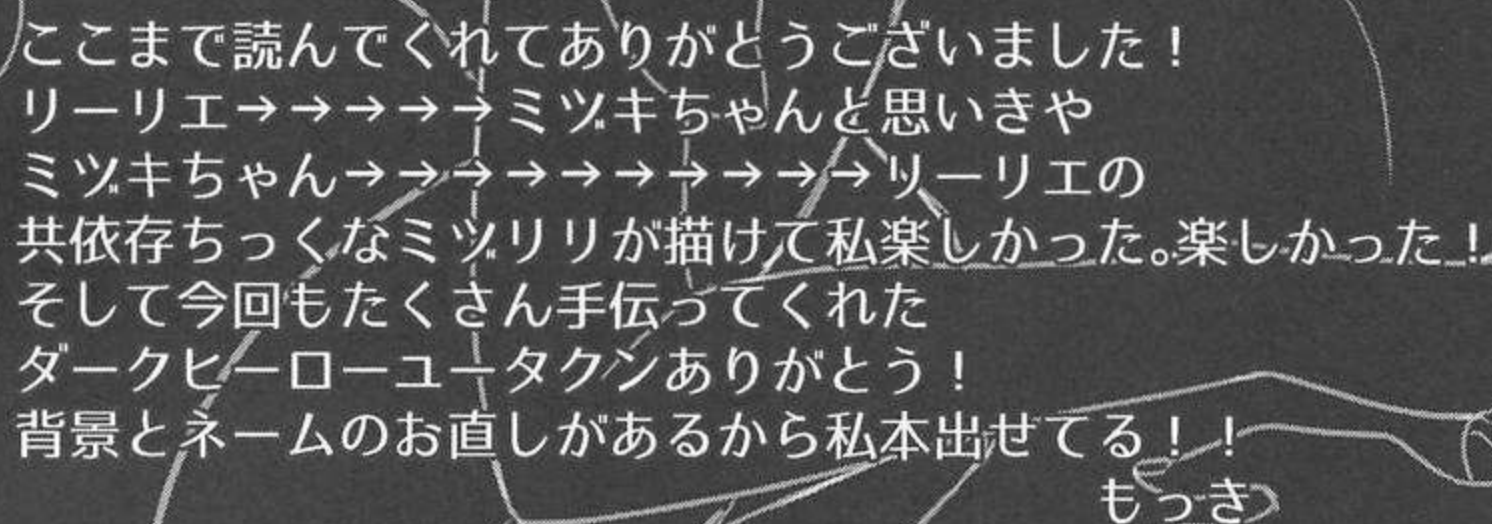 ここまで読んでくれてありがとうございました！
リーリエ→→→→→ミヅキちゃんと思いきや
ミヅキちゃん→→→→→→→→→→リーリエの
共依存ちっくなミヅリリが描けて私楽しかった。楽しかった！
そして今回もたくさん手伝ってくれた
ダークヒーローユータクンありがとう！
背景とネームのお直しがあるから私本出せてる！！
もっさ